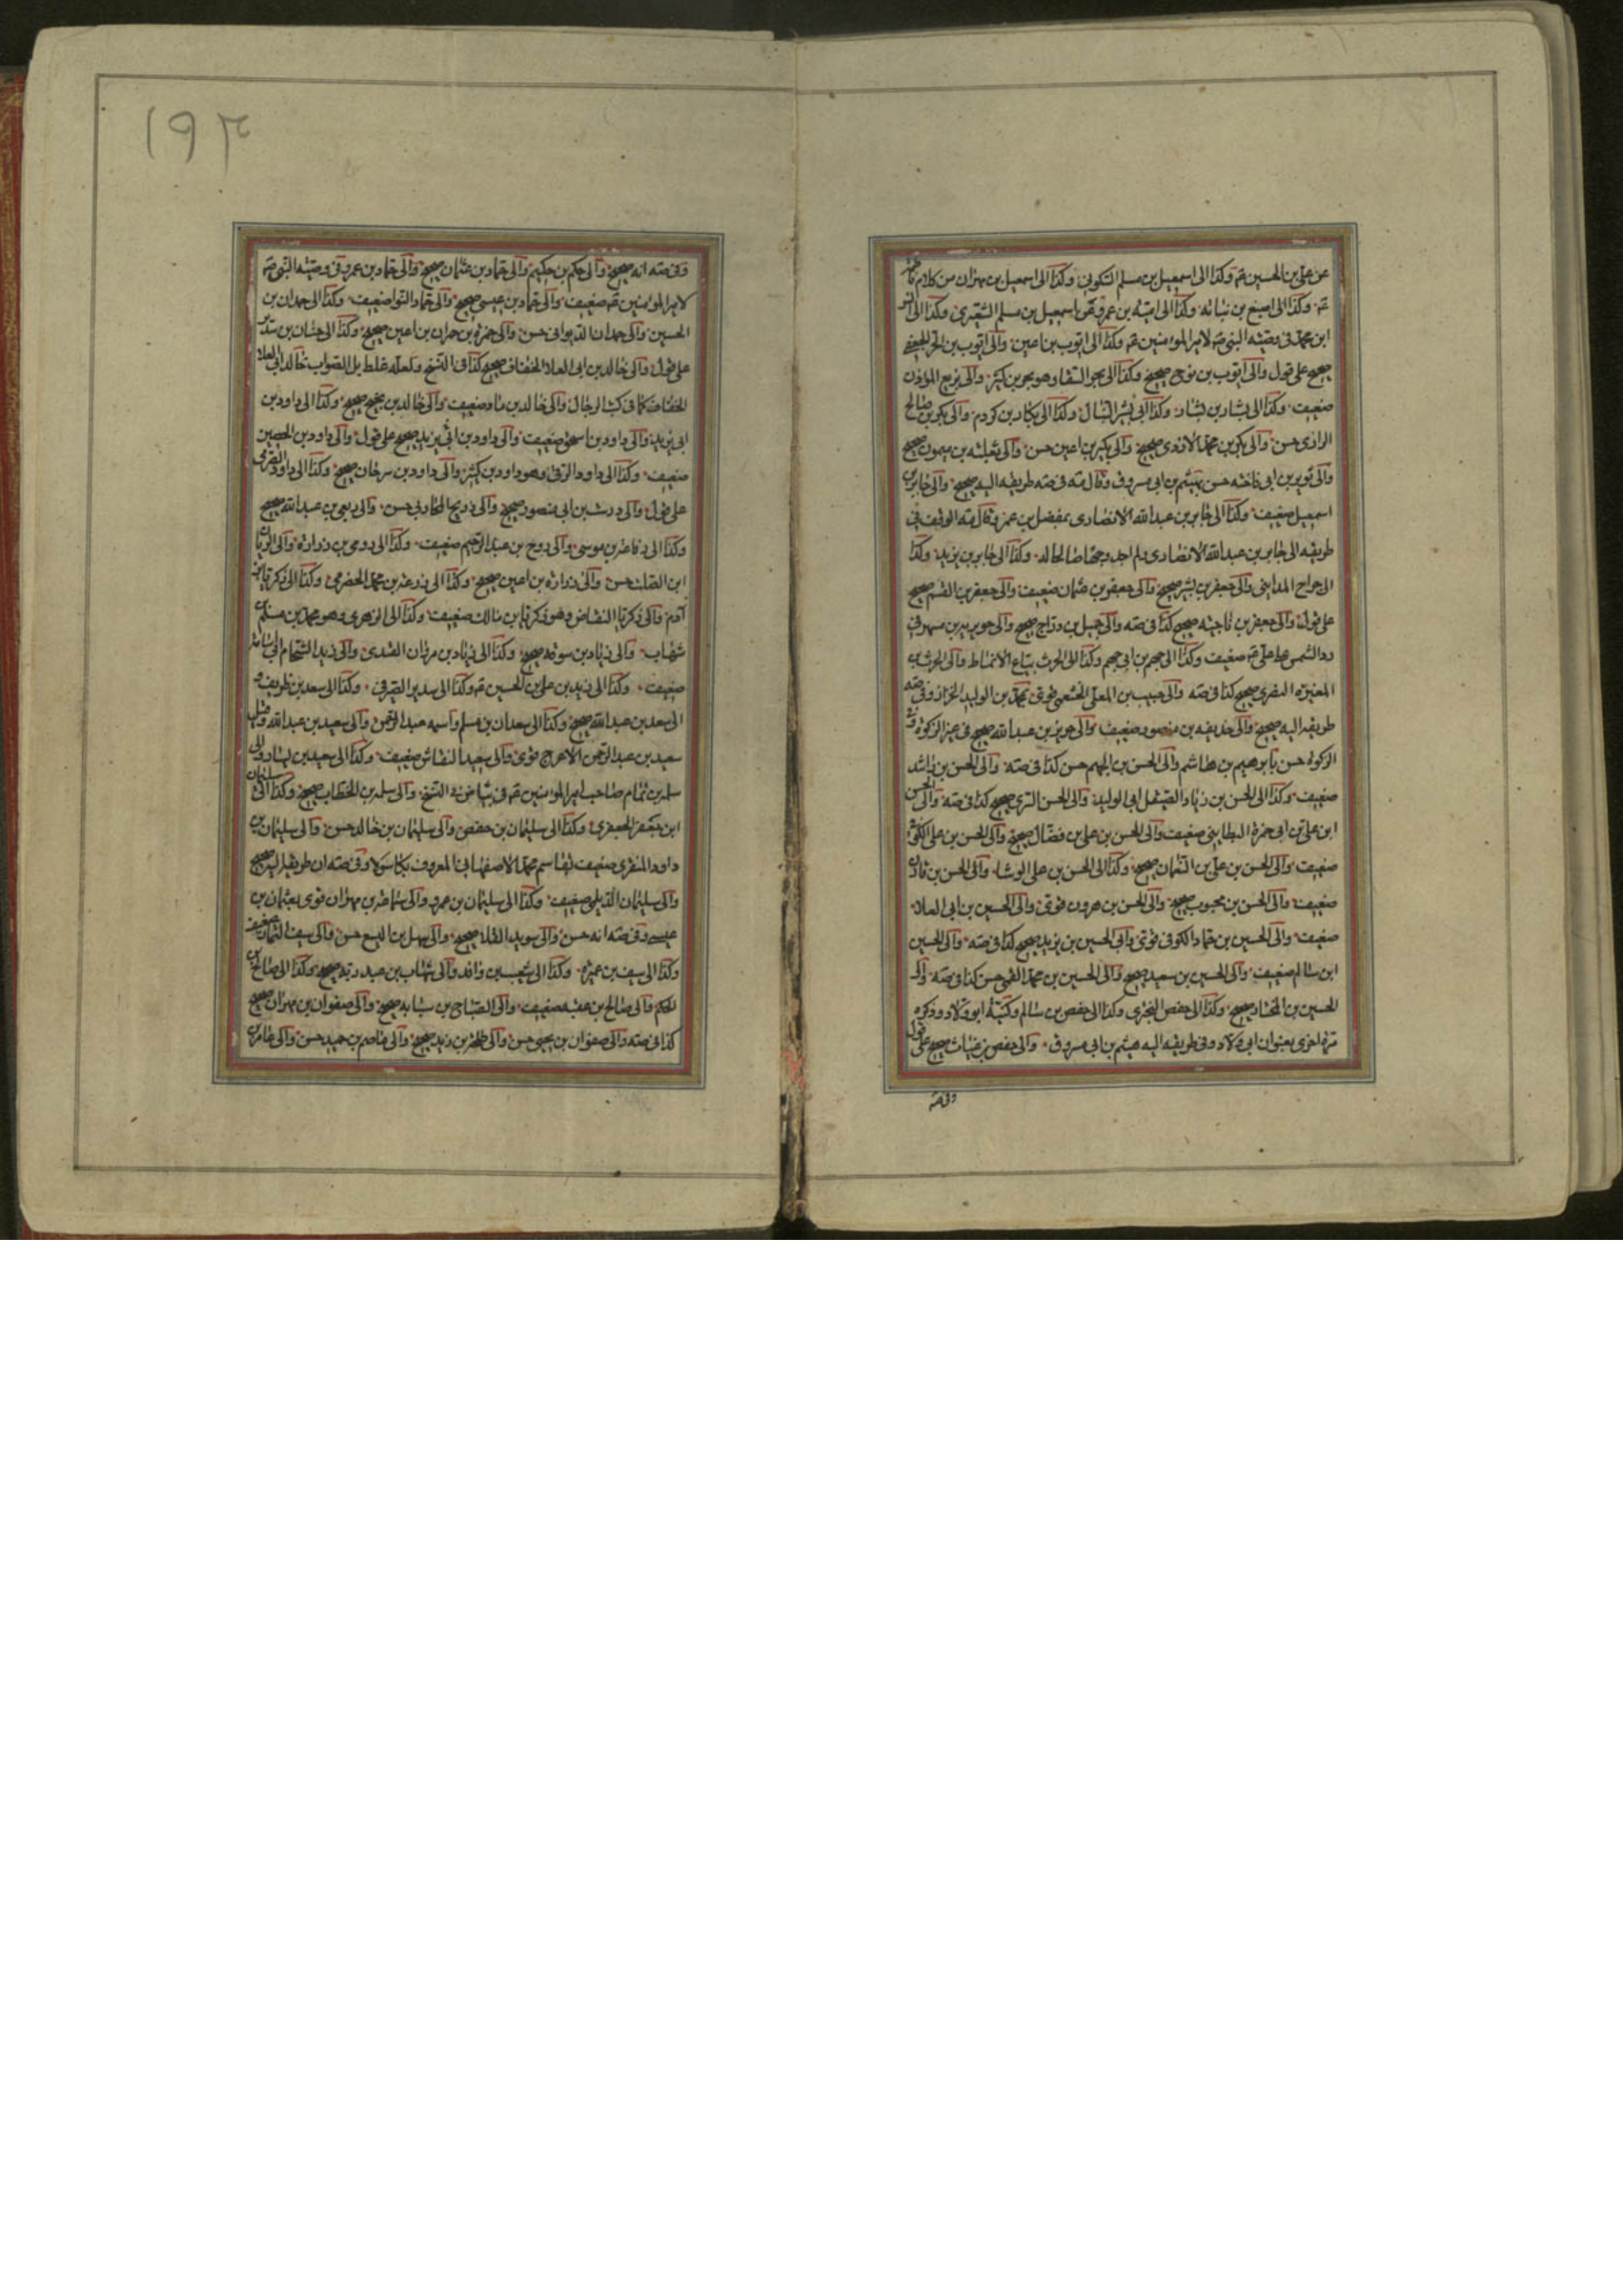 عن علي بن الحسين ع وكذا الى اسمعيل بن مسلم السكوني وكذا الى اسمعيل بن مهران من كلام فاطمة
ع وكذا الى اصبغ بن نباته وكذا الى اميه بن عمرو عن اسمعيل بن مسلم الشعيري وكذا الى انس
ابن محمد في وصيته النبي ص لامير المومنين ع وكذا الى ايوب بن اعين والى ايوب بن الحر الجعفي
صحيح على قول والى ايوب بن نوح صحيح وكذا الى بحر السقا وهو بحر بن كثير والى بزيع الموذن
ضعيف وكذا الى بشار بن يسار وكذا الى بشير النبال وكذا الى بكار بن كردم والى بكر بن صالح
الرازي حسن والى بكر بن محمد الازدي صحيح والى بكير بن اعين حسن والى ثعلبه بن ميمون صحيح
والى ثوير بن ابي فاخته حسن بهيثم بن ابي مسروق وقال مه في صه طريقه اليه صحيح والى جابر بن
اسمعيل ضعيف وكذا الى جابر بن عبد الله الانصاري بمفضل بن عمر وقال
طريقه الى جابر بن عبد الله الانصاري ولم اجد وجها صالحا له وكذا الى جابر بن يزيد وكذا
الى جراح المدايني والى جعفر بن بشير صحيح والى جعفر بن عثمان ضعيف والى جعفر بن القسم صحيح
على قول والى جعفر بن ناجيه صحيح كذا في صه والى جميل بن دراج صحيح والى جويريه بن مسهر في
رد الشمس على علي ع ضعيف وكذا الى جهم بن ابي جهم وكذا الى الحرث بياع الانماط والى الحرث بن
المغيره النصري صحيح كذا في صه والى حبيب بن المعلى الخثعمي قوي بمحمد بن الوليد الخزاز وفي صه
طريقه اليه صحيح والى حذيفه بن منصور ضعيف والى حريز بن عبد الله صحيح في غير الزكوة وفي
الزكوة حسن بابرهيم بن هاشم والى الحسن بن الجهم حسن كذا في صه والى الحسن بن راشد
ضعيف وكذا الى الحسن بن زياد الصيقل ابي الوليد والى الحسن السري صحيح كذا في صه والى الحسن
ابن علي بن ابي حمزة البطايني ضعيف والى الحسن بن علي بن فضال صحيح والى الحسن بن علي الكوفي
ضعيف والى الحسن بن علي بن النعمان صحيح وكذا الى الحسن بن علي الوشا والى الحسن بن قارن
ضعيف والى الحسن بن محبوب صحيح والى الحسن بن هرون قوي والى الحسين بن ابي العلاء
ضعيف والى الحسين بن حماد الكوفي قوي والى الحسين بن يزيد صحيح كذا في صه والى الحسين
ابن سالم ضعيف والى الحسين بن سعيد صحيح والى الحسين بن محمد القمي حسن كذا في صه والى
الحسين بن المختار صحيح وكذا الى حفص البختري وكذا الى حفص بن سالم وكنيته ابو ولاد وذكره
مرة اخرى بعنوان ابي ولاد وفي طريقه اليه هيثم بن ابي مسروق والى حفص بن غياث صحيح على قول
وفي صه
١٩٣
وفي صه انه صحيح والى حكم بن حكيم والى حماد بن عثمان صحيح والى حماد بن عمرو في وصيته النبي ص
لامير المومنين ع ضعيف والى حماد بن عيسى صحيح والى حماد النوا ضعيف وكذا الى حمدان بن
الحسين والى حمدان الديواني حسن والى حمزه بن حمران بن اعين صحيح وكذا الى حنان بن سدير
على قول والى خالد بن ابي العلاء الخفاف صحيح كذا في النسخ ولعله غلط بل الصواب خالد ابي العلا
الخفاف كما في كتب الرجال والى خالد بن ماد ضعيف والى خالد بن نجيح صحيح وكذا الى داود بن
ابي يزيد والى داود بن اسحق ضعيف والى داود بن ابي يزيد صحيح على قول والى داود بن الحصين
ضعيف وكذا الى داود الرقي وهو داود بن كثير والى داود بن سرحان صحيح وكذا الى داود الصرمي
على قول والى درست بن ابي منصور صحيح والى ذريح المحاربي حسن والى ربعي بن عبد الله صحيح
وكذا الى رفاعه بن موسى والى روح بن عبد الرحيم ضعيف وكذا الى رومي بن زراره والى الريان
ابن الصلت حسن والى زراره بن اعين صحيح وكذا الى زرعه بن محمد الحضرمي وكذا الى زكريا بن
آدم والى زكريا النقاض وهو زكريا بن مالك ضعيف وكذا الى الزهري وهو محمد بن مسلم بن
شهاب والى زياد بن سوقه صحيح وكذا الى زياد بن مروان القندي والى زيد الشحام ابي اسامة
ضعيف وكذا الى زيد بن علي بن الحسين ع وكذا الى سدير الصيرفي وكذا الى سعد بن طريف و
الى سعد بن عبد الله صحيح وكذا الى سعدان بن مسلم واسمه عبد الرحمن والى سعيد بن عبد الله وقيل
سعيد بن عبد الرحمن الاعرج قوي والى سعيد النقاش ضعيف وكذا الى سعيد بن يسار والى
سلمه بن تمام صاحب امير المومنين ع في بياض نه النسخ والى سلمه بن الخطاب صحيح وكذا الى سليمان
ابن جعفر الجعفري وكذا الى سليمان بن حفص والى سليمان بن خالد حسن والى سليمان بن
داود المنقري ضعيف لقاسم محمد الاصفهاني المعروف بكاسولا وفي صه ان طريقه اليه صحيح
والى سليمان الديلمي ضعيف وكذا الى سليمان بن عمرو والى سماعه بن مهران قوي بعثمان بن
عيسى وفي صه انه حسن والى سويد القلا صحيح والى سهل بن اليسع حسن والى سيف التمار ضعيف
وكذا الى سيف بن عميره وكذا الى شعيب بن واقد والى شهاب بن عبد ربه صحيح وكذا الى صالح بن
الحكم والى صالح بن عقبه ضعيف والى الصباح بن سيابه صحيح والى صفوان بن مهران صحيح
كذا في صه والى صفوان بن يحيى حسن والى طلحه بن زيد صحيح والى عاصم بن حميد حسن والى عامر بن